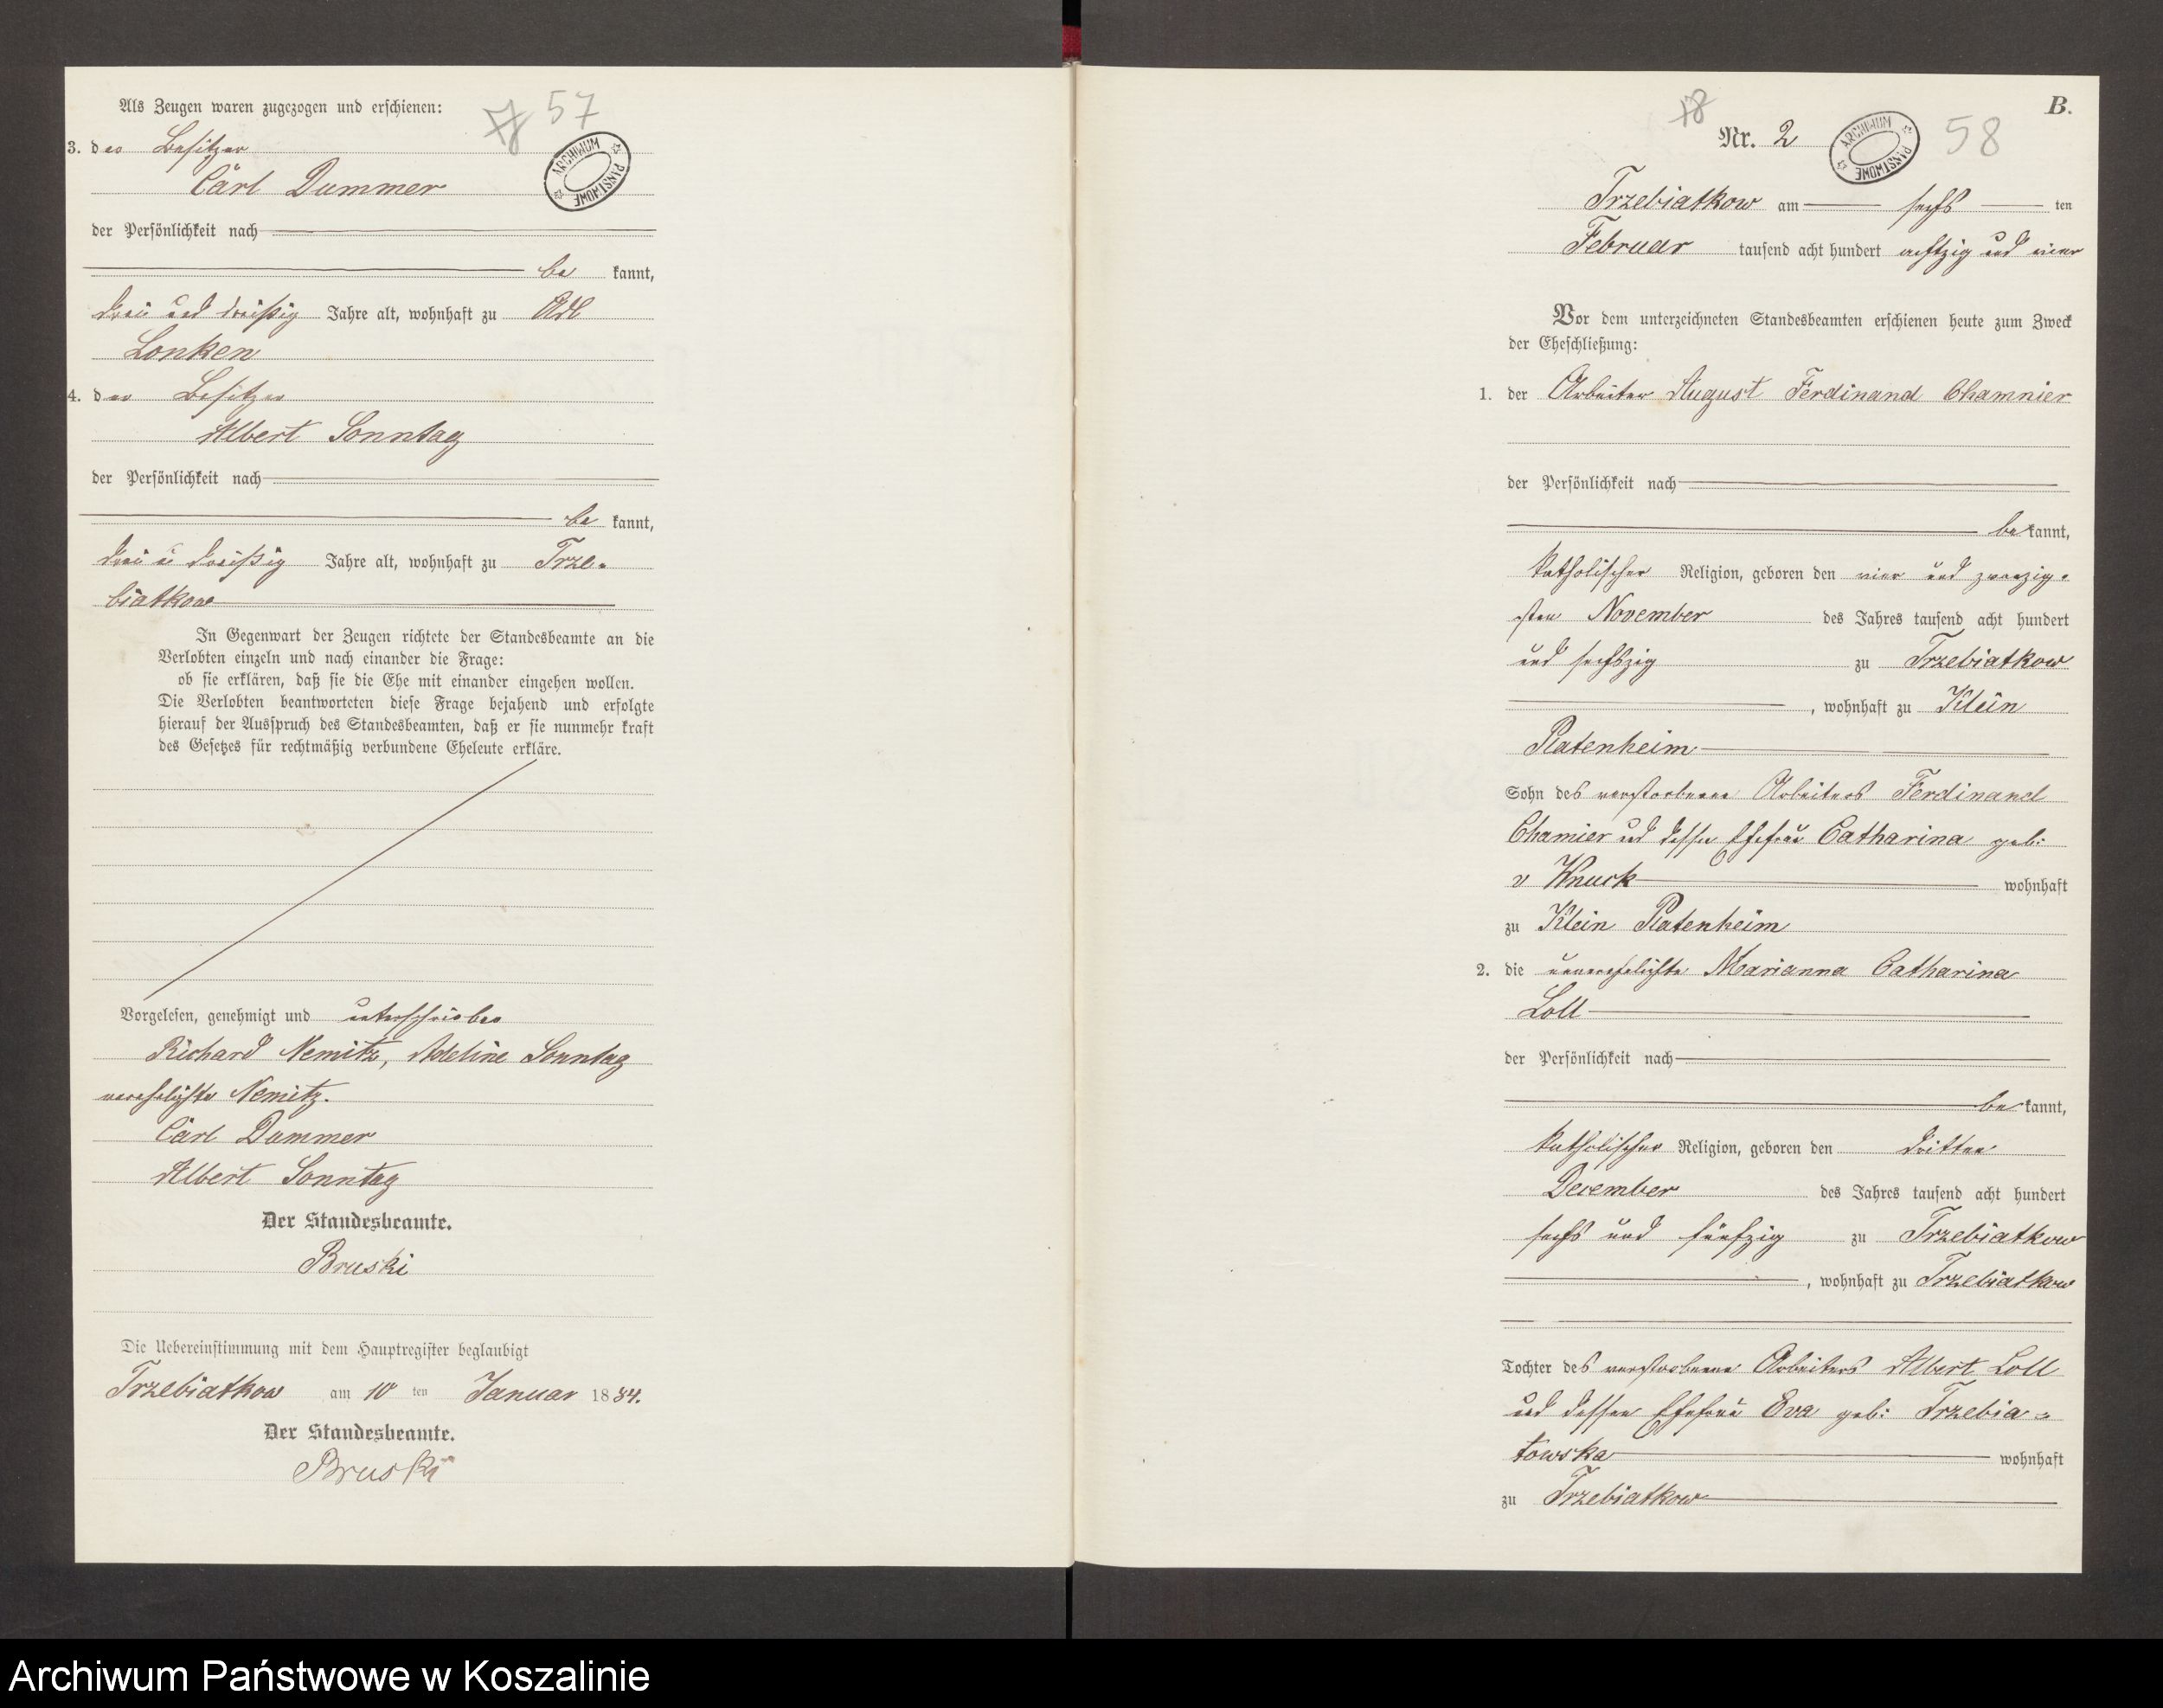 Als Zeugen waren zugezogen und erschienen:
57
ARCHIWUM PAŃSTWOWE
3. der Besitzer
Carl Dummer
der Persönlichkeit nach
be kannt,
drei und dreißig Jahre alt, wohnhaft zu Adl
Lonken
4. der Besitzer
Albert Sonntag
der Persönlichkeit nach
be kannt,
drei u dreißig Jahre alt, wohnhaft zu Trze-
biatkow
In Gegenwart der Zeugen richtete der Standesbeamte an die
Verlobten einzeln und nach einander die Frage:
ob sie erklären, daß sie die Ehe mit einander eingehen wollen.
Die Verlobten beantworteten diese Frage bejahend und erfolgte
hierauf der Ausspruch des Standesbeamten, daß er sie nunmehr kraft
des Gesetzes für rechtmäßig verbundene Eheleute erkläre.
Vorgelesen, genehmigt und unterschrieben
Richard Nemitz, Adeline Sonntag
verehelichte Nemitz.
Carl Dummer
Albert Sonntag
Der Standesbeamte.
Bruski
Die Uebereinstimmung mit dem Hauptregister beglaubigt
Trzebiatkow am 10 ten Januar 1884.
Der Standesbeamte.
Bruski
B.
Nr. 2
ARCHIWUM PAŃSTWOWE
58
Trzebiatkow am sechs ten
Februar tausend acht hundert achtzig und vier
Vor dem unterzeichneten Standesbeamten erschienen heute zum Zweck
der Eheschließung:
1. der Arbeiter August Ferdinand Chamnier
der Persönlichkeit nach
be kannt,
katholischer Religion, geboren den vier und zwanzig-
sten November des Jahres tausend acht hundert
und sechszig zu Trzebiatkow
, wohnhaft zu Klein
Platenheim
Sohn des verstorbenen Arbeiters Ferdinand
Chamier und dessen Ehefrau Catharina geb:
v Wnuck wohnhaft
zu Klein Platenheim
2. die unverehelichte Marianna Catharina
Loll
der Persönlichkeit nach
be kannt,
katholischer Religion, geboren den dritten
December des Jahres tausend acht hundert
sechs und fünfzig zu Trzebiatkow
, wohnhaft zu Trzebiatkow
Tochter des verstorbenen Arbeiters Albert Loll
und dessen Ehefrau Eva geb: Trzebia-
towska wohnhaft
zu Trzebiatkow
Archiwum Państwowe w Koszalinie